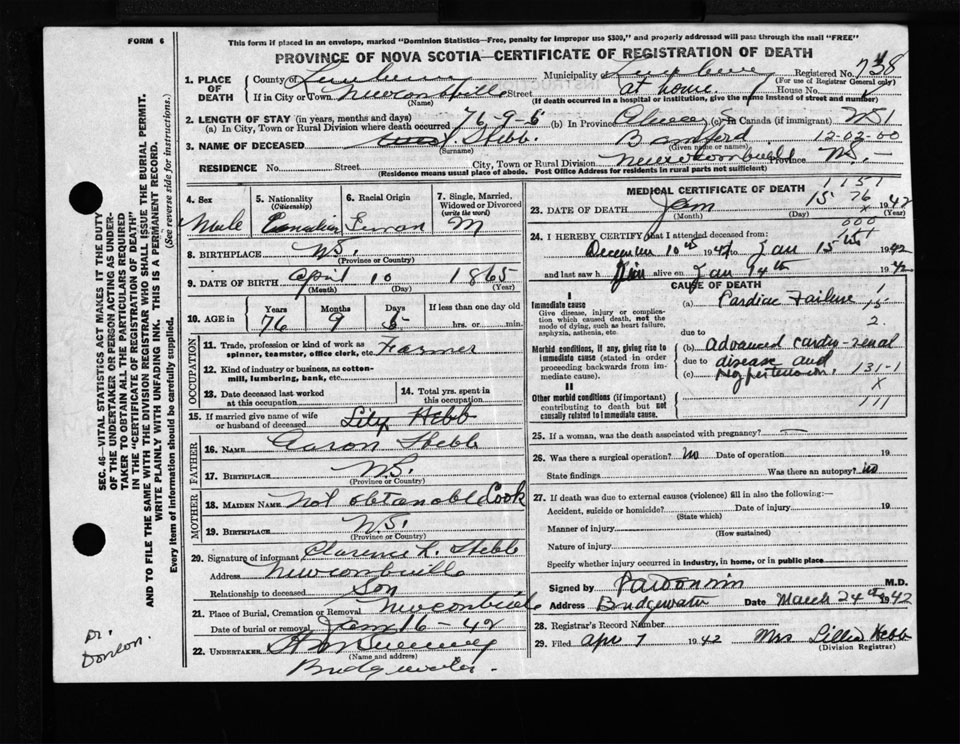 FORM 6
This form if placed in an envelope, marked "Dominion Statistics—Free, penalty for improper use $300," and properly addressed will pass through the mail "FREE"
PROVINCE OF NOVA SCOTIA—CERTIFICATE OF REGISTRATION OF DEATH
1. PLACE OF DEATH
County of Lunenburg Municipality Lunenburg Registered No. 738
(For use of Registrar General only)
If in City or Town Newcombville Street at home House No.
(Name) (If death occurred in a hospital or institution, give the name instead of street and number)
2. LENGTH OF STAY (in years, months and days)
(a) In City, Town or Rural Division where death occurred 76-9-5 (b) In Province Always (c) In Canada (if immigrant)
3. NAME OF DECEASED Hebb
(Surname) (Given name or names)
12-02-00
RESIDENCE No. Street City, Town or Rural Division Newcombville Province N.S.
(Residence means usual place of abode. Post Office Address for residents in rural parts not sufficient)
4. Sex Male
5. Nationality (Citizenship) Canadian
6. Racial Origin
7. Single, Married, Widowed or Divorced (write the word) M
8. BIRTHPLACE N.S.
(Province or Country)
9. DATE OF BIRTH April 10 1865
(Month) (Day) (Year)
10. AGE in Years Months Days If less than one day old
76 9 5 hrs. or min.
OCCUPATION
11. Trade, profession or kind of work as spinner, teamster, office clerk, etc. Farmer
12. Kind of industry or business, as cotton-mill, lumbering, bank, etc.
13. Date deceased last worked at this occupation
14. Total yrs. spent in this occupation
15. If married give name of wife or husband of deceased Lily Hebb
FATHER
16. NAME Aaron Hebb
17. BIRTHPLACE N.S.
(Province or Country)
MOTHER
18. MAIDEN NAME Not obtanoble Cook
19. BIRTHPLACE N.S.
(Province or Country)
20. Signature of informant Clarence L. Hebb
Address Newcombville
Relationship to deceased Son
21. Place of Burial, Cremation or Removal Newcombville
Date of burial or removal Jan 16-42
22. UNDERTAKER
(Name and address)
Bridgewater
MEDICAL CERTIFICATE OF DEATH
1 1 5 1
23. DATE OF DEATH Jan 15 1942
(Month) (Day) (Year)
76
x
000
24. I HEREBY CERTIFY that I attended deceased from:
December 10th 1941 to Jan 15th 1942
and last saw him alive on Jan 14th 1942
CAUSE OF DEATH
I
Immediate cause
Give disease, injury or complication which caused death, not the mode of dying, such as heart failure, asphyxia, asthenia, etc.
(a) Cardiac Failure
due to
Morbid conditions, if any, giving rise to immediate cause (stated in order proceeding backwards from immediate cause).
(b) Advanced cardio-renal
due to disease and
(c) hypertension. 131-1
x
111
II
Other morbid conditions (if important) contributing to death but not causally related to immediate cause.
25. If a woman, was the death associated with pregnancy? —
26. Was there a surgical operation? No Date of operation 19
State findings Was there an autopsy? No
27. If death was due to external causes (violence) fill in also the following:—
Accident, suicide or homicide? Date of injury 19
(State which)
Manner of injury
(How sustained)
Nature of injury
Specify whether injury occurred in industry, in home, or in public place
Signed by M.D.
Address Bridgewater Date March 24th 1942
28. Registrar's Record Number
29. Filed Apr 7 1942 Mrs Lillia Hebb
(Division Registrar)
SEC. 46—VITAL STATISTICS ACT MAKES IT THE DUTY
OF THE UNDERTAKER OR PERSON ACTING AS UNDER-
TAKER TO OBTAIN ALL THE PARTICULARS REQUIRED
IN THE "CERTIFICATE OF REGISTRATION OF DEATH"
AND TO FILE THE SAME WITH THE DIVISION REGISTRAR WHO SHALL ISSUE THE BURIAL PERMIT.
WRITE PLAINLY WITH UNFADING INK. THIS IS A PERMANENT RECORD.
Every item of information should be carefully supplied. (See reverse side for instructions.)
Dr. Donlon.